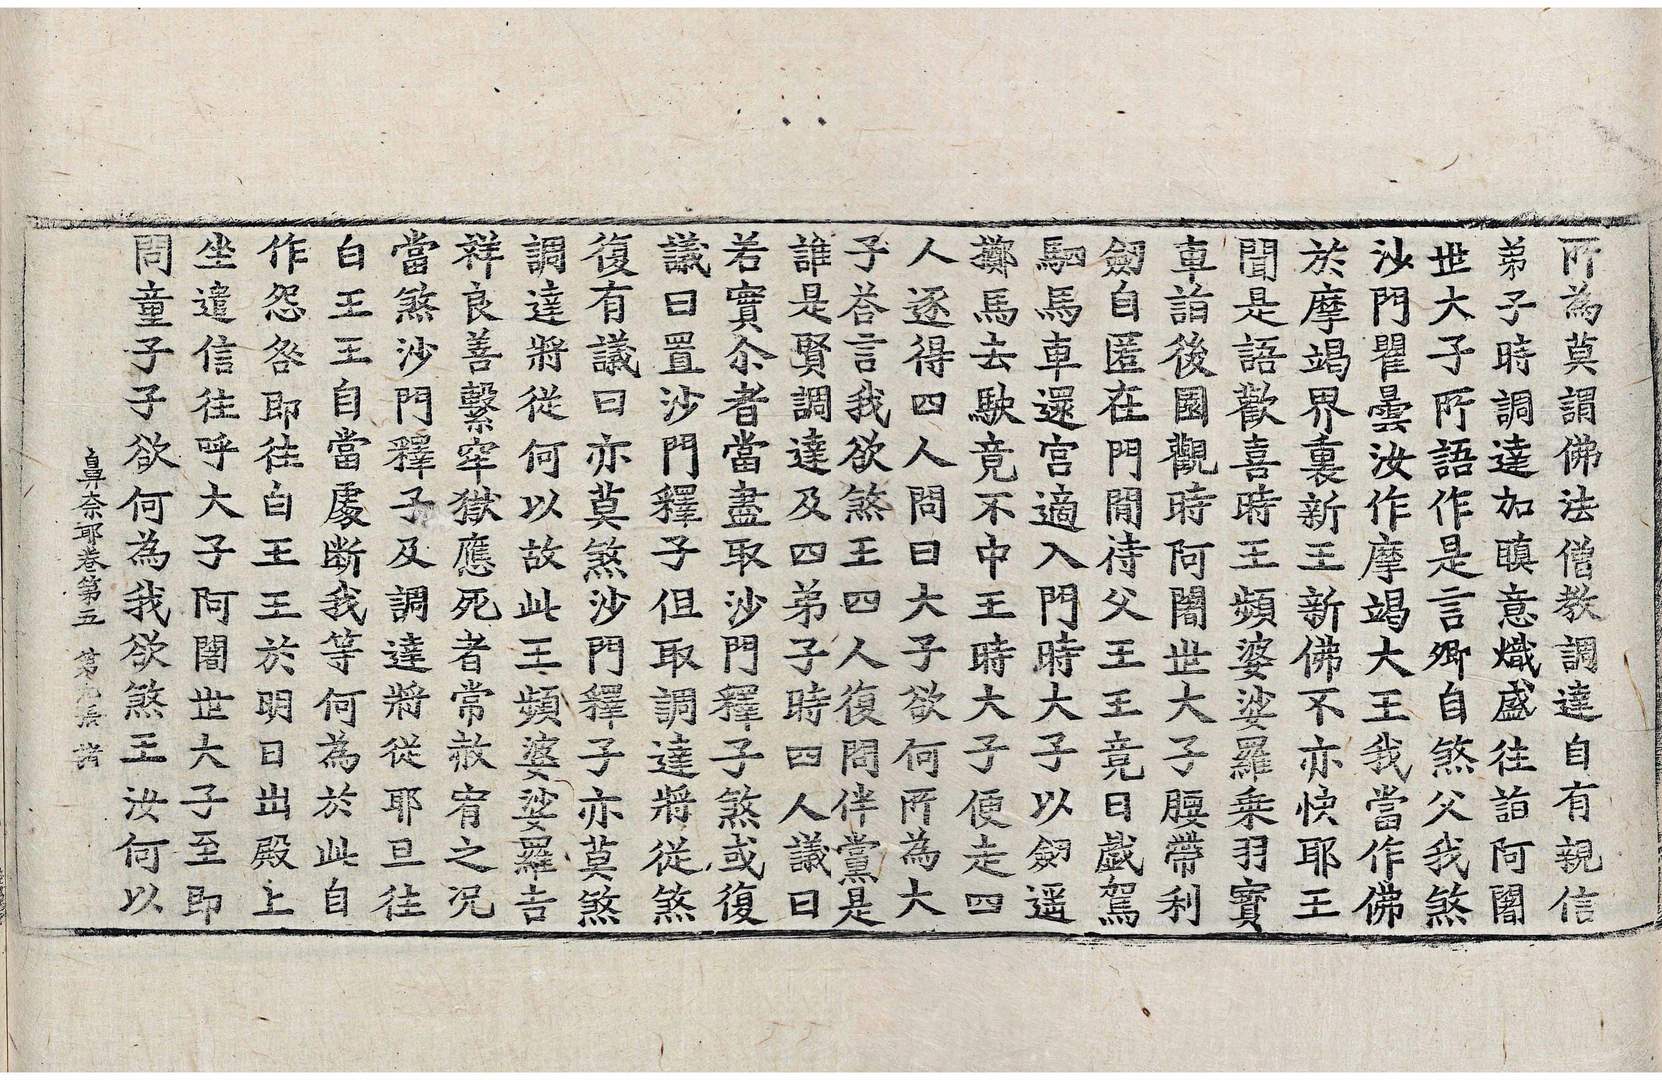 所為莫謂佛法僧教調達自有親信
弟子時調達加瞋意熾盛往詣阿闍
世大子所語作是言卿自煞父我煞
沙門瞿曇汝作摩竭大王我當作佛
於摩竭界裏新王新佛不亦快耶王
聞是語歡喜時王頻婆娑羅乗羽寶
車詣後園觀時阿闍世大子腰帶利
劒自匿在門閒待父王王竟日戱駕
駟馬車還宮適入門時大子以劒遥
擲馬去駛竟不中王時大子便走四
人逐得四人問曰大子欲何所為大
子荅言我欲煞王四人復問伴黨是
誰是賢調達及四弟子時四人議曰
若實尒者當盡取沙門釋子煞或復
議曰置沙門釋子但取調達將從煞
復有議曰亦莫煞沙門釋子亦莫煞
調達將從何以故此王頻婆娑羅吉
祥良善繫窂獄應死者常赦宥之况
當煞沙門釋子及調達將從耶旦往
白王王自當處斷我等何為於此自
作怨咎即往白王王於明日出殿上
坐遣信往呼大子阿闍世大子至即
問童子子欲何為我欲煞王汝何以
鼻奈耶卷第五 第九張 諸